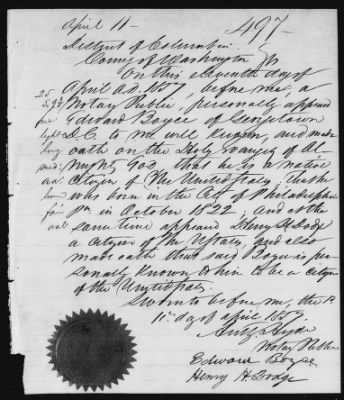 April 11 - 497-
District of Columbia
County of Washington } ss
On this eleventh day of
April A.D. 1857, before me, a
Notary Public, personally appeared
Edward Boyce of Georgetown
D.C. to me well known, and made
oath on the Holy Evangely of Al-
mighty God that he is a native
Citizen of The United States, that he
was born in the City of Philadelphia
in October 1822, and at the
same time appeared Henry H.
a citizen of the UStates, and also
made oath that said Boyce is per-
sonally known to him to be a citizen
of the United States.
Sworn to before me, the
11th day of April 1857.
Notary Public
Edward Boyce
Henry H.